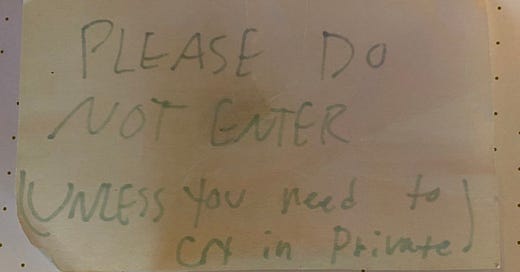 PLEASE DO
NOT ENTER
(UNLESS you need to
cry in Private)